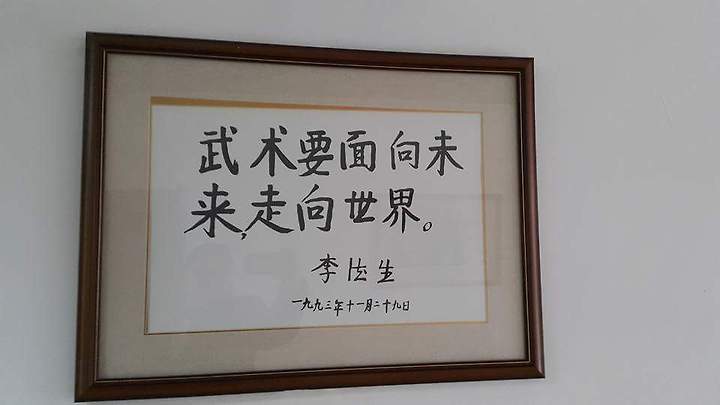 武术要面向未
来,走向世界。
李德生
一九九三年十一月二十九日